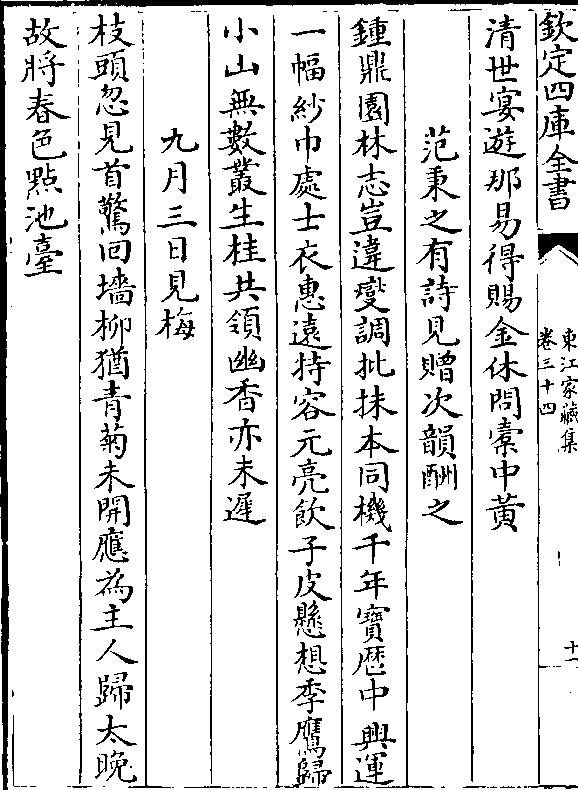 欽定四庫全書
東江家藏集
卷三十四
十一
清世宴遊那易得賜金休問橐中黄
范秉之有詩見贈次韻酬之
鍾鼎園林志豈違燮調批抹本同機千年寶歴中興運
一幅紗巾處士衣惠遠持容元亮飲子皮懸想季鷹歸
小山無數叢生桂共領幽香亦未遲
九月三日見梅
枝頭忽見首驚回墻柳猶青菊未開應為主人歸太晚
故將春色㸃池臺